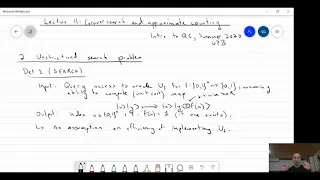 Lecture 11: Grover search and approximate counting
Intro to QC, Summer 2020
UPB
2 Unstructured search problem
Def 1 (SEARCH)
Input: Query access to oracle U_f for f:{0,1}^n → {0,1}, meaning
ability to compute (unit cost) map
|x⟩|y⟩ → |x⟩|y⊕f(x)⟩
Output: index x∈{0,1}^n s.t. f(x)=1 (if one exists).
↳ no assumption on efficiency of implementing U_f.